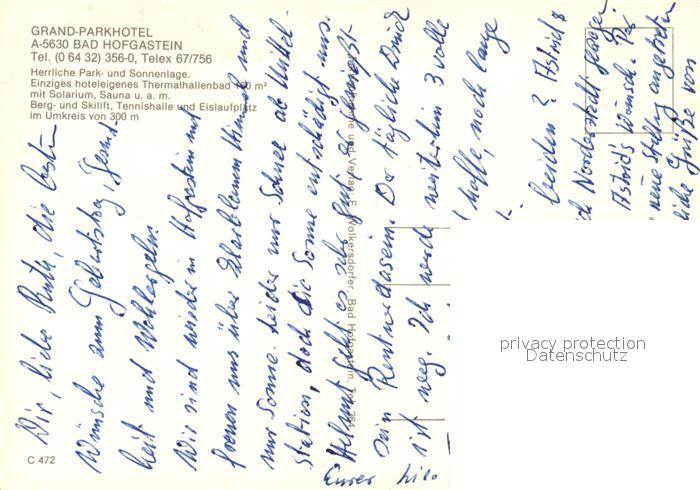 GRAND-PARKHOTEL
A-5630 BAD HOFGASTEIN
Tel. (0 64 32) 356-0, Telex 67/756
Herrliche Park- und Sonnenlage.
Einziges hoteleigenes Thermalhallenbad m²
mit Solarium, Sauna u. a. m.
Berg- und Skilift, Tennishalle und Eislaufplatz
im Umkreis von 300 m
Dir, liebe Ruth, die besten
Wünsche zum Geburtstag, Gesund-
heit und Wohlergehn.
Wir sind wieder in Hofgastein und
freuen uns über blauen Himmel und
nur Sonne. Leider nur Schnee ab Mittel-
station, doch die Sonne entschädigt uns.
Helmut geht es sehr gut, er genießt
sein Rentnerdasein. Der tägliche Druck
ist weg. Ich werde weiterhin 3 volle
hoffe, noch lange
beiden? Astrid
Norderstedt gezogen
Astrid's Wunsch.
neue Stellung angetreten
Grüße von
Eurer Lilo
und Verlag: E. Wolkersdorfer, Bad Hofgastein, Tel.
C 472
privacy protection
Datenschutz